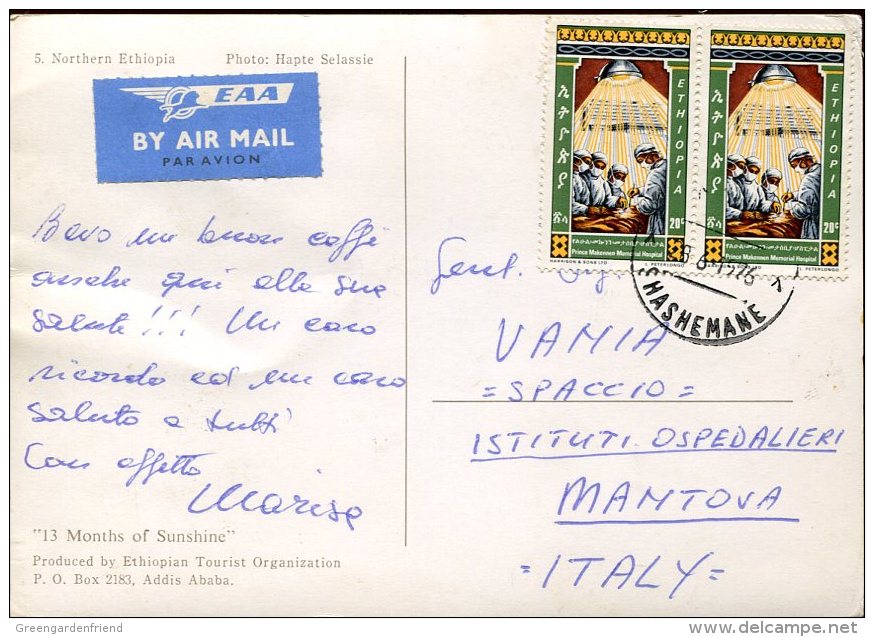 5. Northern Ethiopia Photo: Hapte Selassie
EAA
BY AIR MAIL
PAR AVION
Bevo un buon caffè
anche qui alla sua
salute!!! Un caro
ricordo ed un caro
saluto a tutti
Con affetto
Marisa
"13 Months of Sunshine"
Produced by Ethiopian Tourist Organization
P. O. Box 2183, Addis Ababa.
ኢትዮጵያ
ETHIOPIA
20c
Prince Makonnen Memorial Hospital
HARRISON & SONS LTD
L. PETERLONGO
ኢትዮጵያ
ETHIOPIA
20c
Prince Makonnen Memorial Hospital
HARRISON & SONS LTD
L. PETERLONGO
SHASHEMANE
Gent.
VANIA
= SPACCIO =
ISTITUTI OSPEDALIERI
MANTOVA
= ITALY =
Greengardenfriend
www.delcampe.net